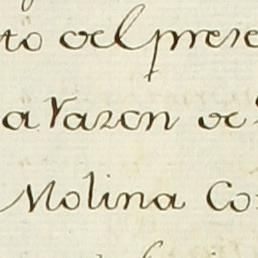 to del prese
a razon de
Molina Co